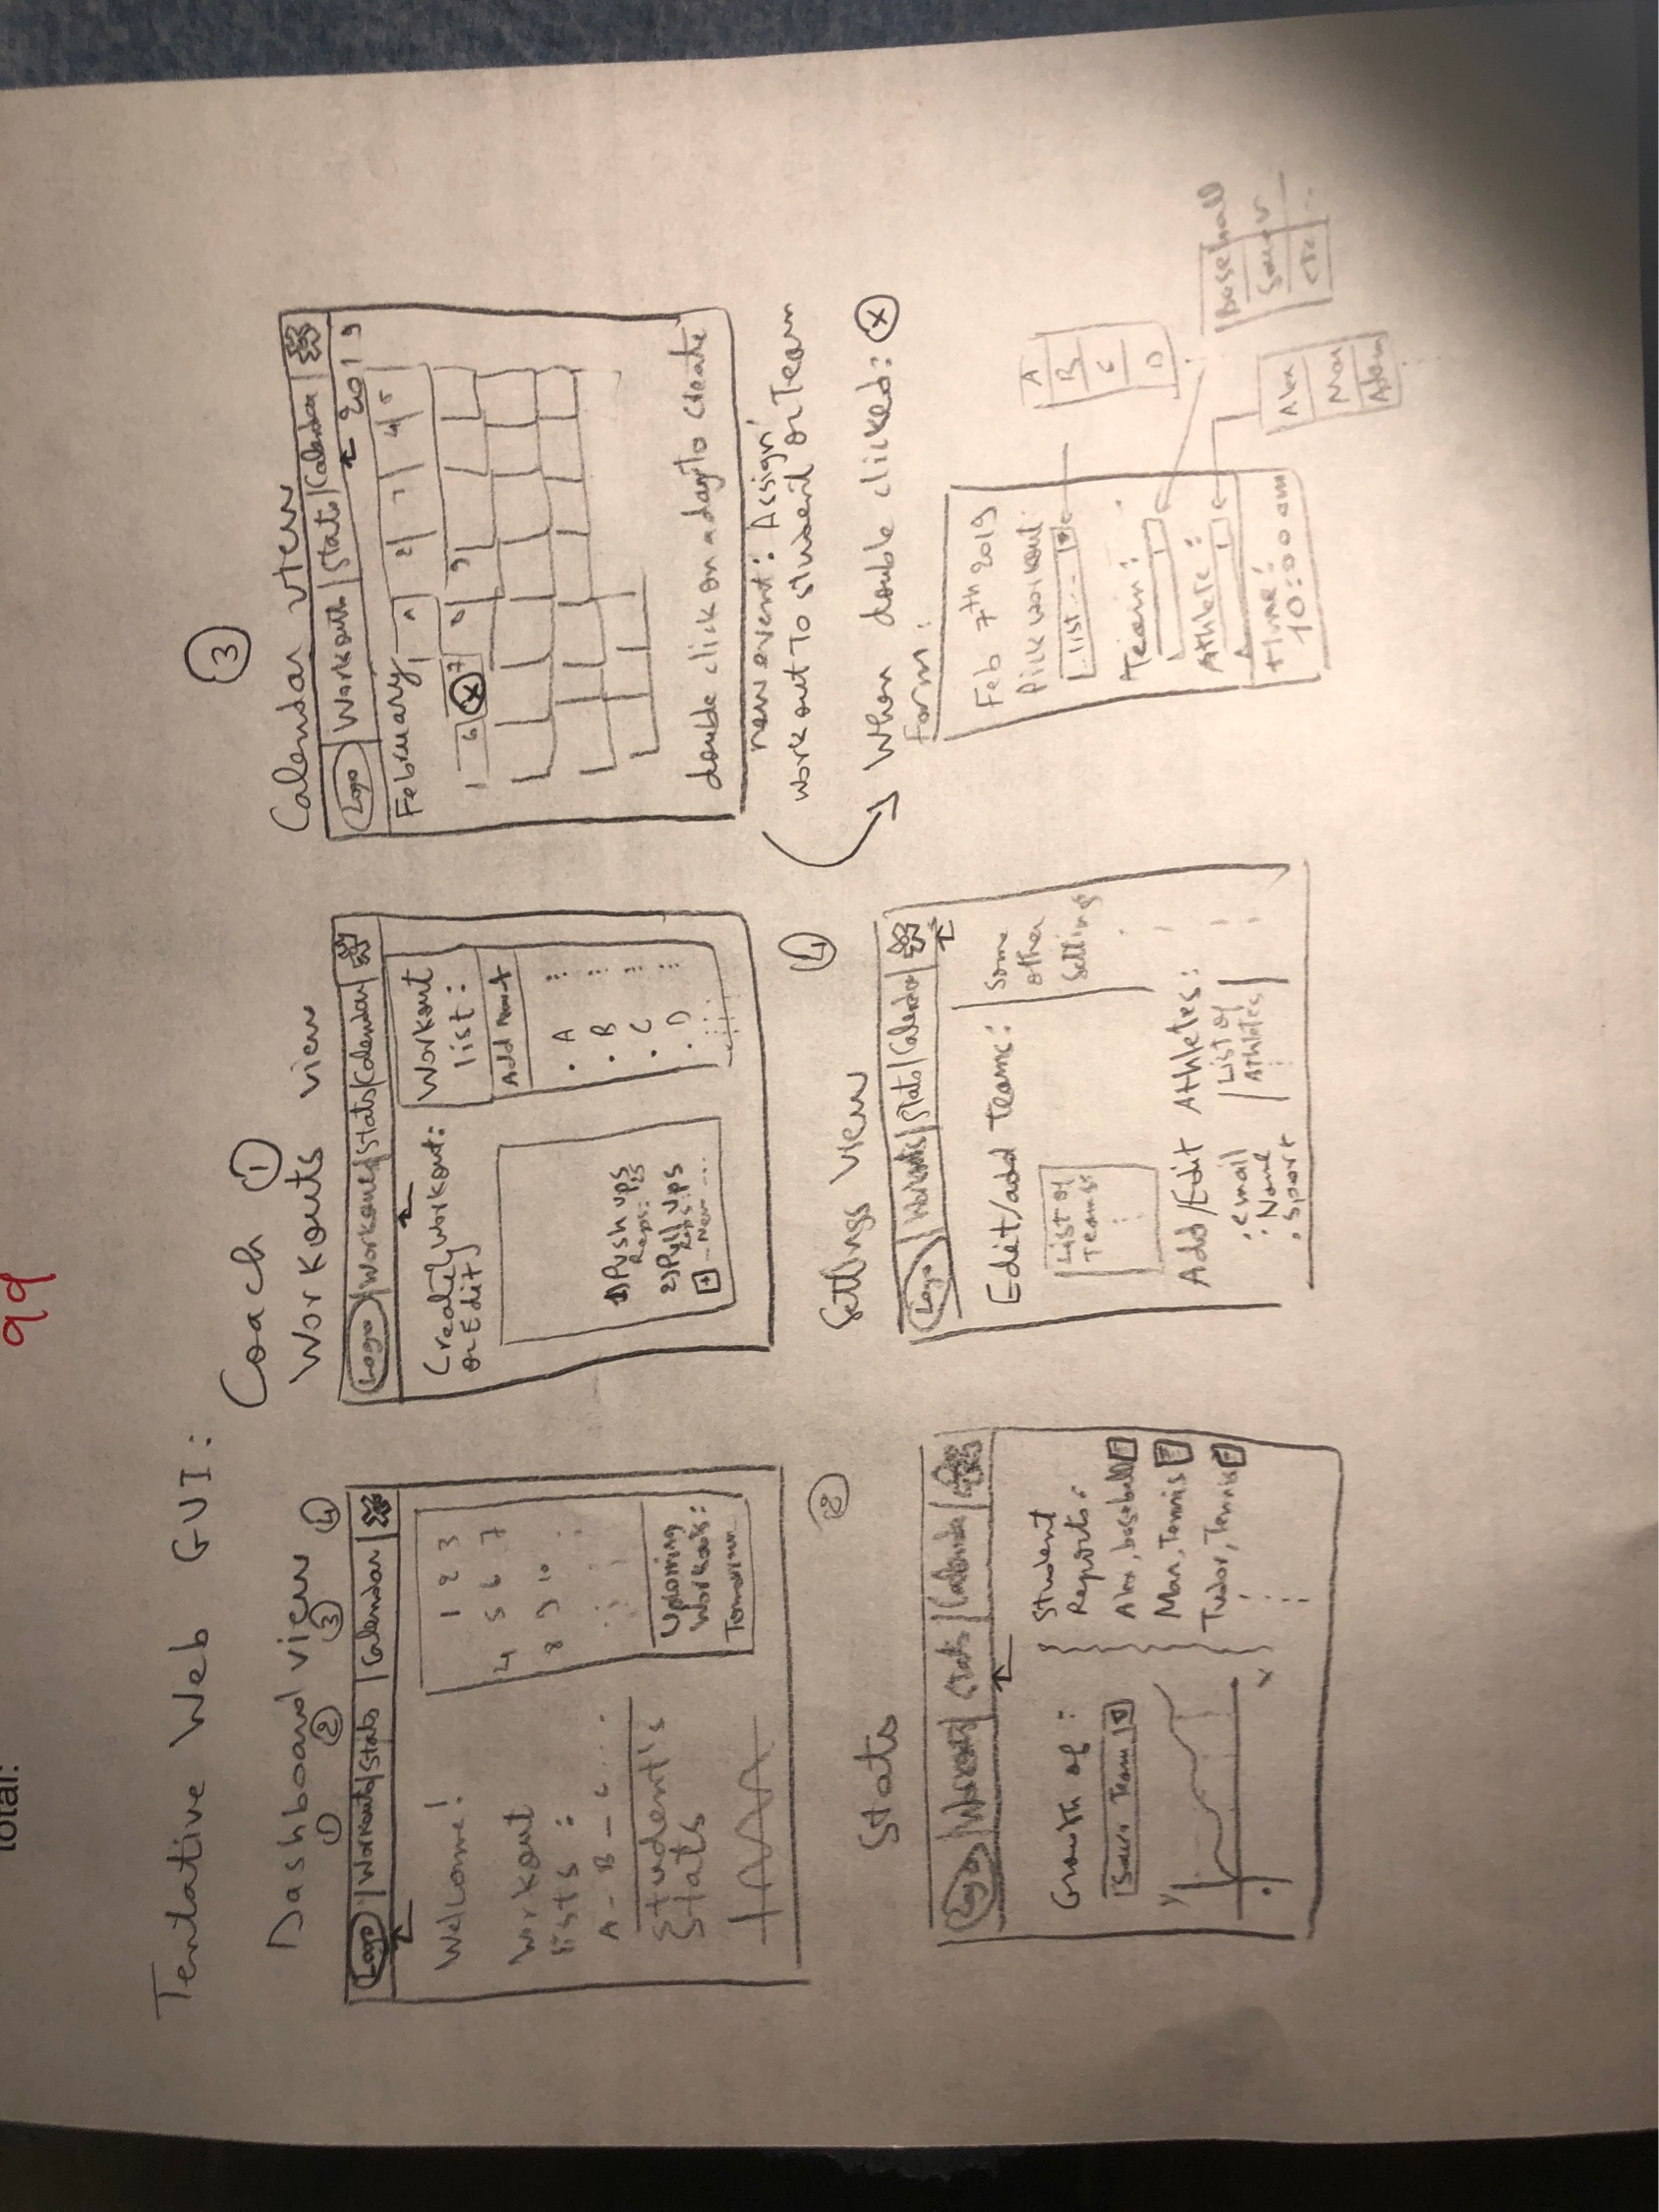 total:
99
Tentative Web GUI:
Coach ①
③
Dashboard view
① ② ③ ④
Logo | Workouts | Stats | Calendar |
Welcome!
Workout
lists :
A - B - C ....
Student's
Stats
1 2 3
4 5 6 7
8 9 10
Upcoming
Workouts:
Tomorrow
Workouts view
Logo | Workouts | Stats | Calendar |
Create } Workout:
or Edit
1) Push ups
Reps: 25
2) Pull ups
Reps:
+ - New ...
Workout
list :
Add New +
. A ...
. B ...
. C ...
. D ...
Calendar view
Logo | Workouts | Stats | Calendar |
2019
February
1 2 3 4 5
6 X 7 8 9
double click on a day to create
new event: Assign
workout to student or Team
When double clicked: X
Form:
Feb 7th 2019
Pick workout
list ...
Team:
Athlete:
time:
10:00 am
A
B
C
D
Baseball
etc...
Alex
Max
Adam
②
Stats
Logo | Workouts | Stats | Calendar |
Growth of :
Team
y
x
Student
Reports:
Alex, baseball
Max, Tennis
Tudor, Tennis
④
Settings View
Logo | Workouts | Stats | Calendar |
Edit/add teams:
List of
Teams:
Some
other
Settings
Add/Edit Athletes:
. email
. Name
. Sport
List of
Athletes